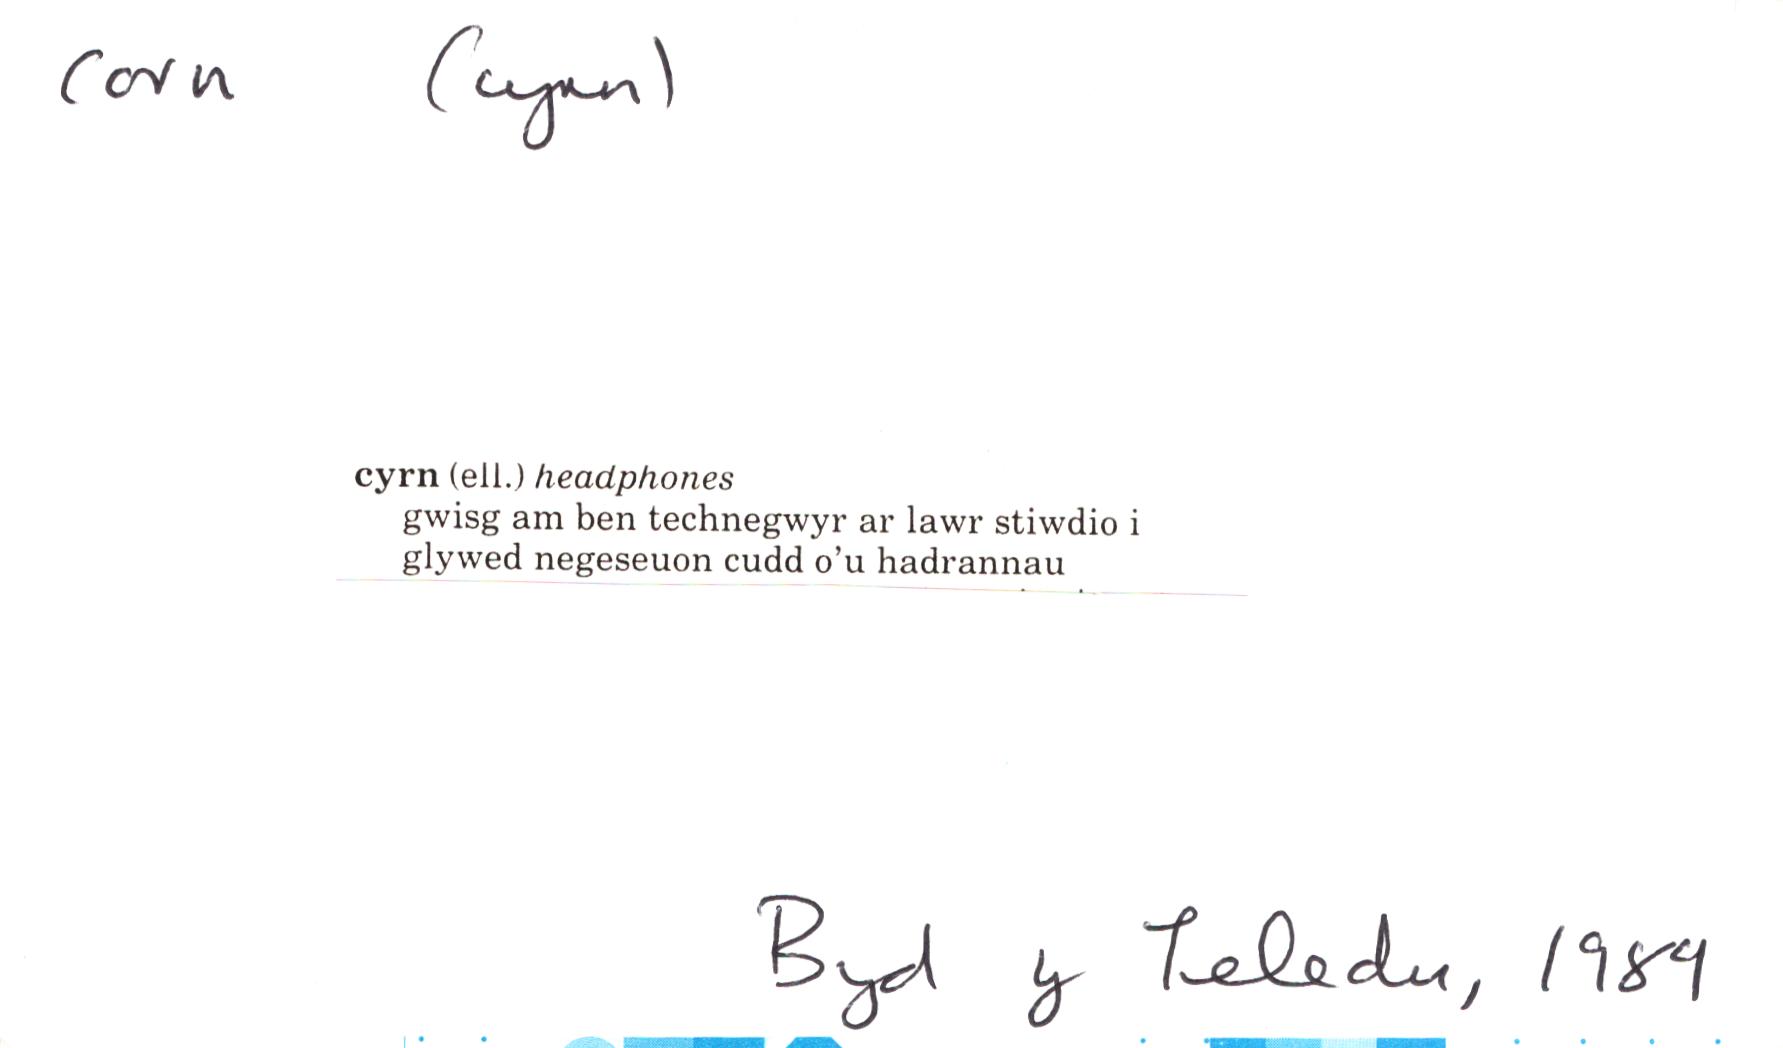 corn (cyrn)
cyrn (ell.) headphones
gwisg am ben technegwyr ar lawr stiwdio i
glywed negeseuon cudd o'u hadrannau
Byd y Teledu, 1984